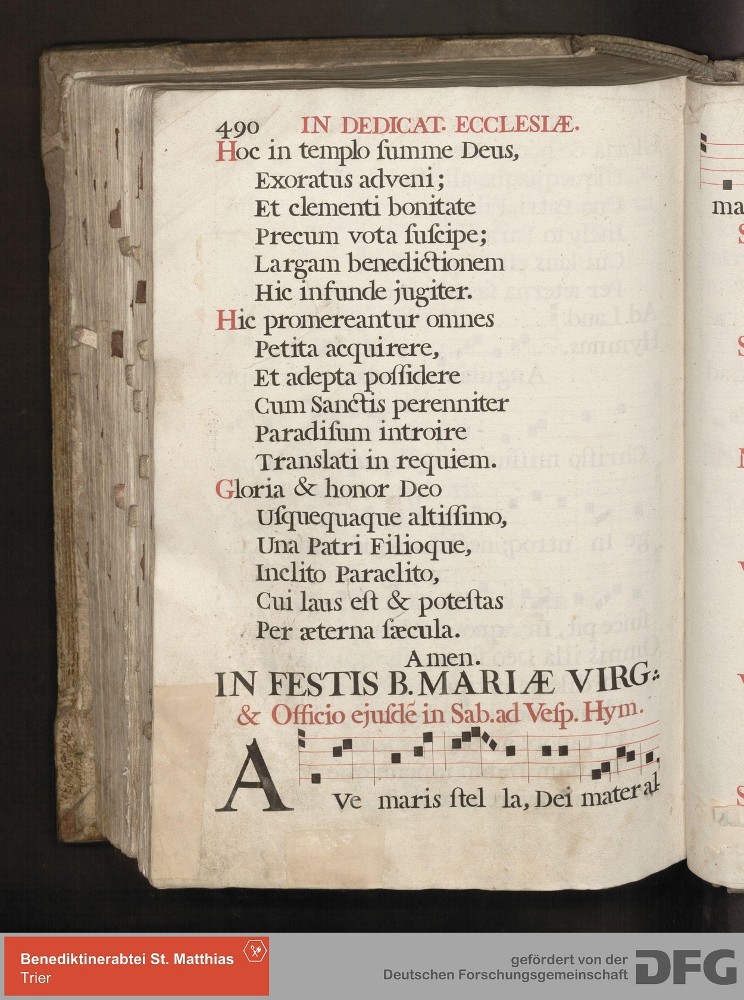 490 IN DEDICAT. ECCLESIÆ.
Hoc in templo ſumme Deus,
Exoratus adveni;
Et clementi bonitate
Precum vota ſuſcipe;
Largam benedictionem
Hic infunde jugiter.
Hic promereantur omnes
Petita acquirere,
Et adepta poſſidere
Cum Sanctis perenniter
Paradiſum introire
Translati in requiem.
Gloria & honor Deo
Uſquequaque altiſſimo,
Una Patri Filioque,
Inclito Paraclito,
Cui laus eſt & poteſtas
Per æterna ſæcula.
Amen.
IN FESTIS B. MARIÆ VIRG:
& Officio ejuſdẽ in Sab. ad Veſp. Hym.
A Ve maris ſtel la, Dei mater al
ma
Benediktinerabtei St. Matthias
Trier
gefördert von der
Deutschen Forschungsgemeinschaft
DFG